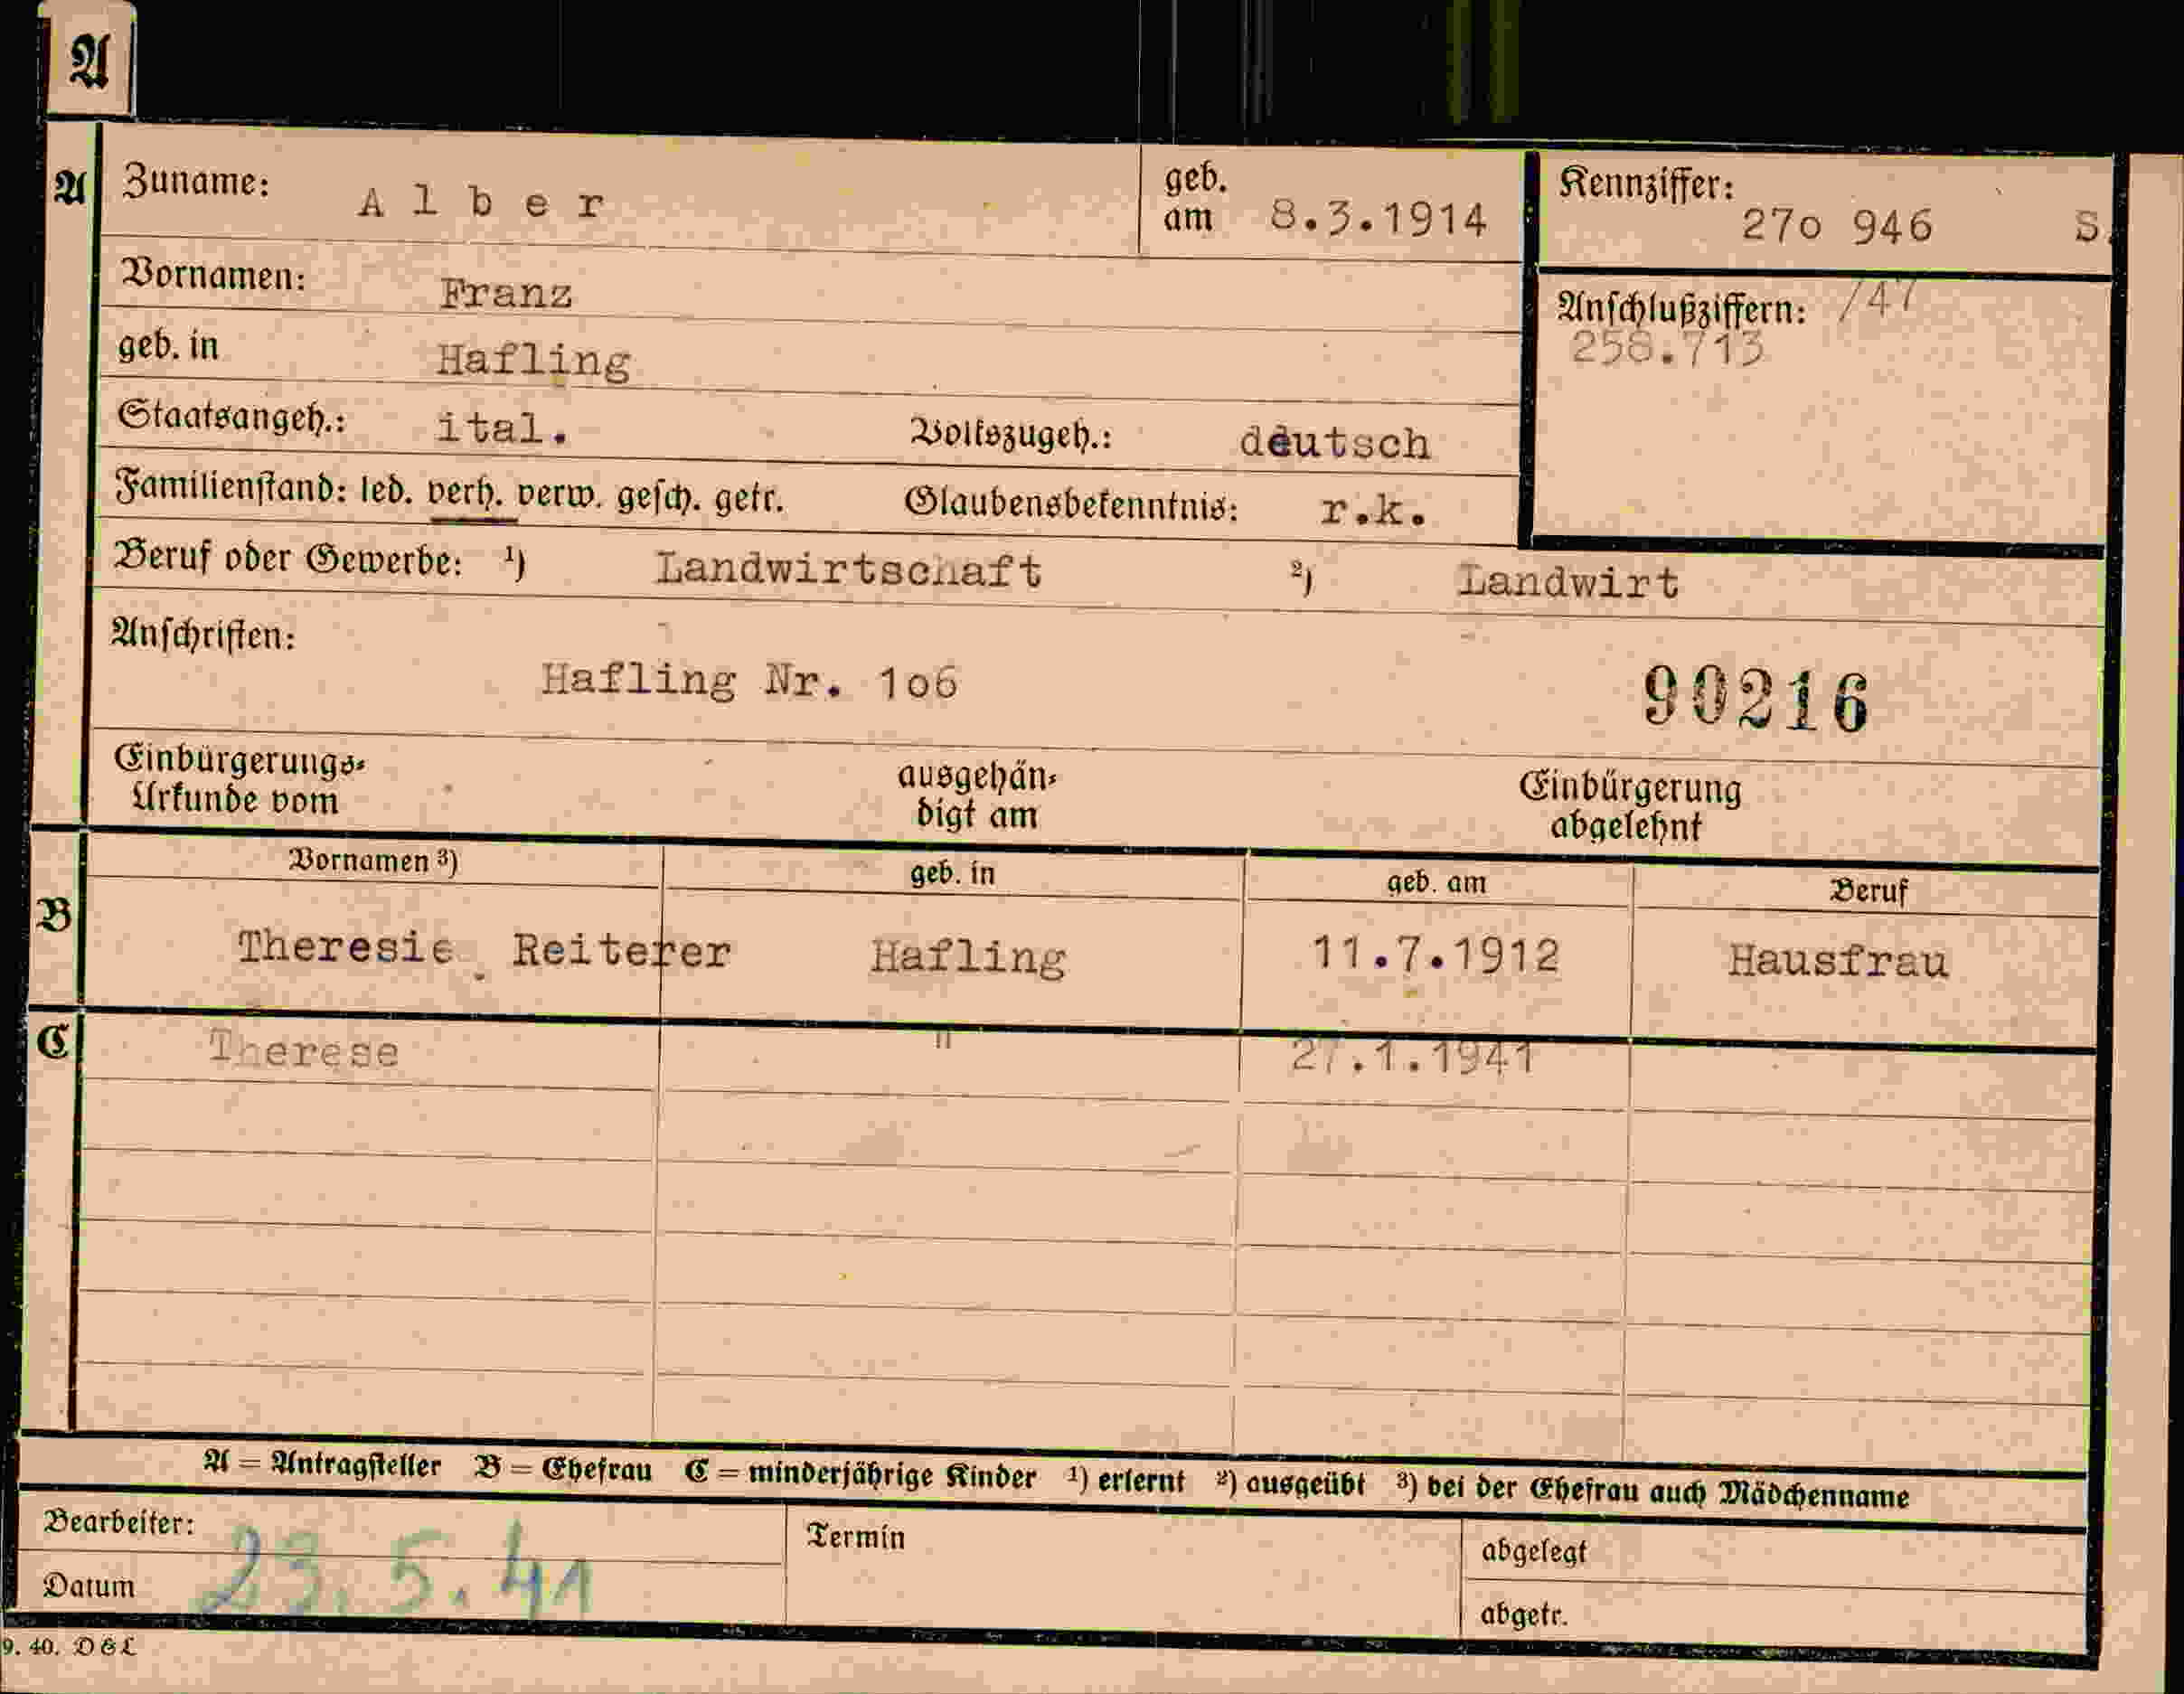 A
A Zuname: Alber geb. am 8.3.1914 Kennziffer: 27o 946 S.
Vornamen: Franz Anschlußziffern: /47
geb. in Hafling 258.713
Staatsangeh.: ital. Volkszugeh.: deutsch
Familienstand: led. verh. verw. gesch. getr. Glaubensbekenntnis: r.k.
Beruf oder Gewerbe: ¹) Landwirtschaft ²) Landwirt
Anschriften:
Hafling Nr. 1o6 90216
Einbürgerungs- Urkunde vom ausgehän- digt am Einbürgerung abgelehnt
Vornamen ³) geb. in geb. am Beruf
B Theresie Reiterer Hafling 11.7.1912 Hausfrau
C Therese " 27.1.1941
A = Antragsteller B = Ehefrau C = minderjährige Kinder ¹) erlernt ²) ausgeübt ³) bei der Ehefrau auch Mädchenname
Bearbeiter: Termin abgelegt
Datum 23.5.41 abgetr.
9. 40. D & L